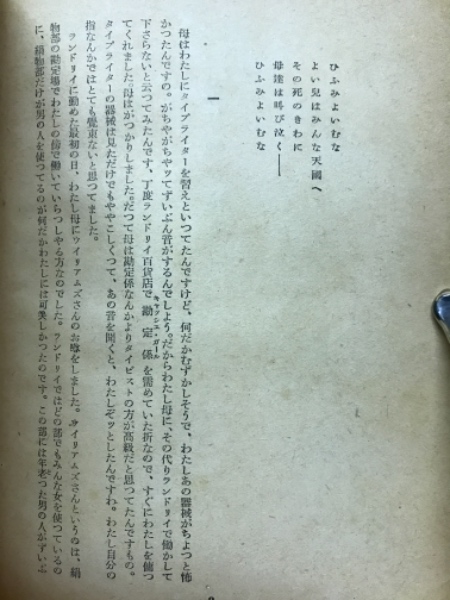 ひふみよいむな
よい兒はみんな天國へ
その死のきわに
母達は叫び泣く――
ひふみよいむな
一
母はわたしにタイプライターを習えといつてたんですけど、何だかむずかしそうで、わたしあの器械がちよつと怖
かつたんですの。がちやがちやッてずいぶん音がするんでしよう。だからわたし母に、その代りランドリイで働かして
下さらないと云つてみたんです、丁度ランドリイ百貨店で勘定係を需めていた折なので、すぐにわたしを傭つ
キャッシュ・ガール
てくれました。母はがつかりしました。だつて母は勘定係なんかよりタイピストの方が高級だと思つてたんですもの。
タイプライターの器械は見ただけでもややこしくつて、あの音を聞くと、わたしぞッとしたんですわ。わたし自分の
指なんかではとても覺束ないと思つてました。
ランドリイに勤めた最初の日、わたし母にウイリアムズさんのお噂をしました。ウイリアムズさんというのは、絹
物部の勘定場でわたしの傍で働いていらつしやる方なのでした。ランドリイではどの部でもみんな女を使つているの
に、絹物部だけが男の人を使つてるのが何だかわたしには可笑しかつたのです。この部には年老つた男の人がずいぶ